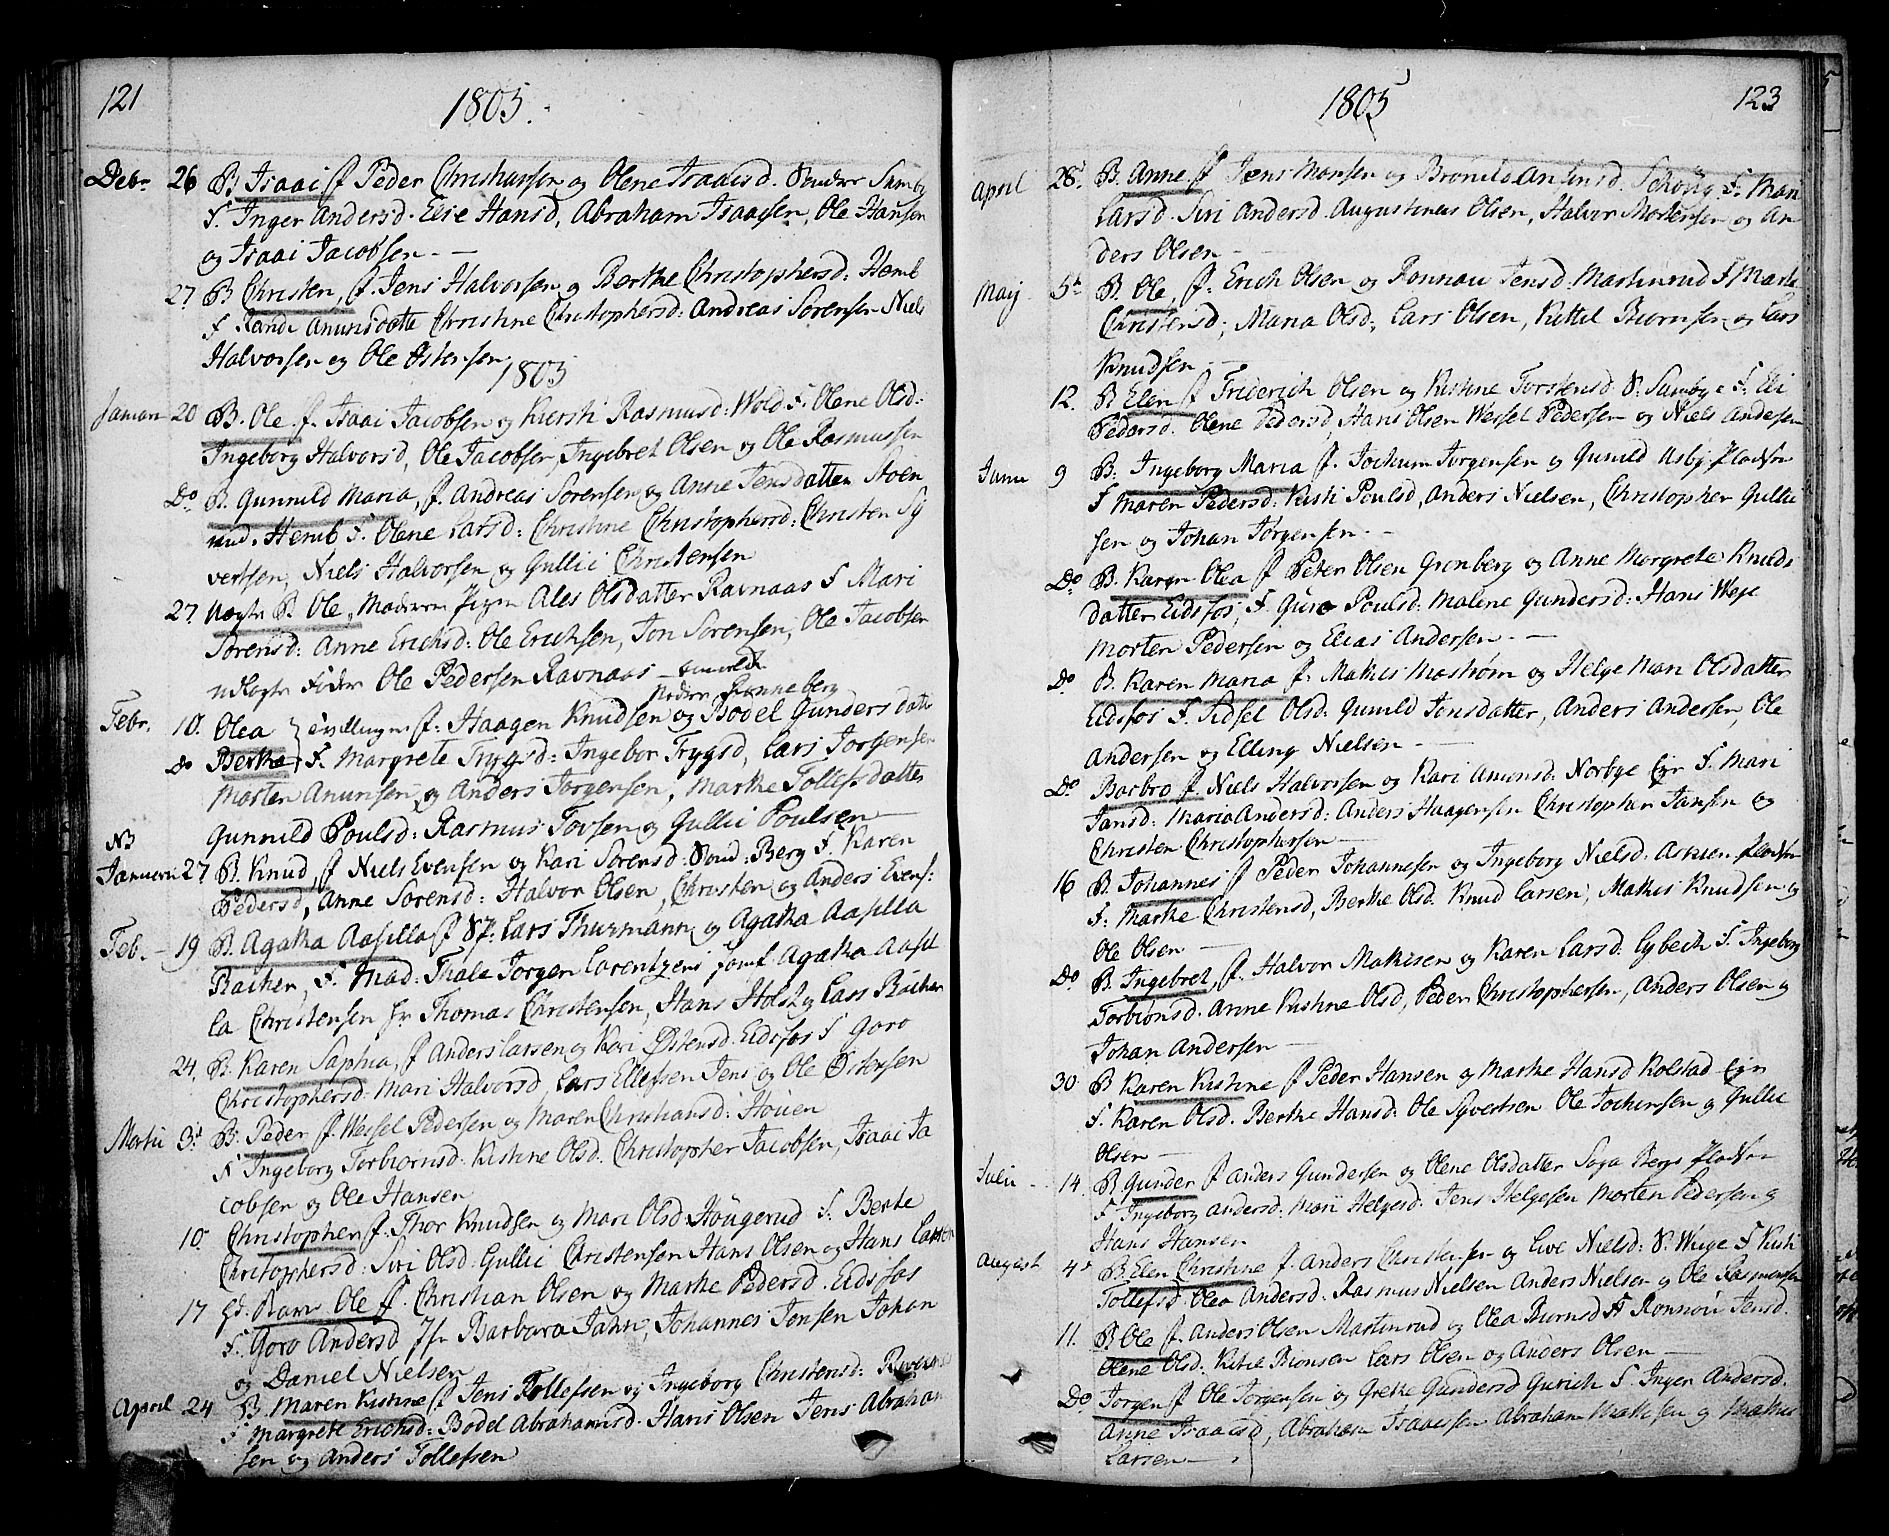 121
1805.
Debr. 26 B. Isaai f Peder Christiansen og Olene Isaacsd. Sondre Sumby
F. Inger Andersd. Elie Hansd, Abraham Isaacsen, Ole Hansen
og Isaai Jacobsen. —
27 B Christen, f. Jens Halvorsen og Berthe Christophersd: Hemb
F. Randi Amunsdatte Christine Christophersd: Andreas Sorensen Niels
Halvorsen og Ole Astensen
1805
Januar 20 B. Ole f. Isaai Jacobsen og Kiersti Rasmusd: Wold F. Olene Olsd:
Ingeborg Halvorsd, Ole Jacobsen, Ingebret Olsen og Ole Rasmussen
Do B. Gunnild Maria, f. Andreas Sorensen og Anne Jensdatter Hoen
Hemb F. Olene Larsd: Christine Christophersd: Christen Sy
vertsen, Niels Halvorsen og Gullic Christensen
27. Uegte B. Ole, Moderen Pigen Ales Olsdatter Ravnaas F Mari
Sorensd: Anne Erichsd: Ole Erichsen, Jon Sorensen, Ole Jacobsen
udlagte Fader Ole Pedersen Ravnaas —
Nodere Ranneberg
Febr. 10. Olea } tvillinger f. Haagen Knudsen og Bodel Gundersdatter
Do Berthe } F. Margrete Trygsd: Ingebor Trygsd, Lars Jorgensen
Morten Anunsen og Anders Jorgensen, Marthe Tollefsdatter
Gunnild Poulsd: Rasmus Tovsen og Gullic Poulsen —
NB
Januari 27 B. Knud, f Niels Evensen og Kari Sorensd: Sond: Berg F. Karen
Pedersd, Anne Sorensd: Halvor Olsen, Christen og Anders Evens:
Feb. — 19 B. Agatha Aasilla f Sr. Lars Thurmann og Agatha Aasilla
Bacher, F. Mad: Thale Jorgen Lorentzens Jomf. Agatha Aasil
la Christensen Hr Thomas Christensen, Hans Holst og Lars Bacher
24. B. Karen Saphia, f Anders Larsen og Kari Østensd. Eidsfos F Goro
Christophersd. Mari Halvorsd, Lars Ellefsen Jens og Ole Østensen
Martii 3d B. Peder f. Wessel Pedersen og Maren Christiansd: Houen
F Ingeborg Torbiornsd. Kistine Olsd. Christopher Jacobsen, Isaai Ja
cobsen og Ole Hansen
10. Christopher f. Thor Knudsen og Mari Olsd: Hougerud F. Berte
Christophersd: Siri Olsd. Gullic Christensen Hans Olsen og Hans Larsen
17 Gd. Barn Ole f. Christian Olsen og Marthe Pedersd. Eidsfos
F. Goro Andersd Jfr Barbara Jahn, Johannes Jensen Johan
og Daniel Nielsen
April 24 B. Maren Kistine f Jens Tollefsen og Ingeborg Christensd:
F Margrete Erichsd: Bodel Abrahamsd. Hans Olsen Jens Abraham
sen og Anders Tollefsen
1805
123
April 28d. B. Anne f Jens Monsen og Bronild Anensd. Schoug F. Mari
Larsd. Siri Andersd. Augustinus Olsen, Halvor Mortensen og An
ders Olsen —
Maij 5d B. Ole, f. Erich Olsen og Ronnau Jensd. Martinrud F Marthe
Christensd, Maria Olsd., Lars Olsen, Kittil Biornsen og Lars
Knudsen —
12. B Elen f Friderich Olsen og Kistine Torstensd S. Sumbye F. Eli
Pedersd. Olene Pedersd, Hans Olsen Wessel Pedersen og Niels Andersen
Junii 9 B. Ingeborg Maria f. Jochum Jorgensen og Gunild Asbj
F Maren Pedersd: Kisti Poulsd, Anders Nielsen, Christopher Gullic
sen og Johan Jorgensen —
Do B. Karen Olea f Peter Olsen Gronberg og Anne Margrete Knuds
datter Eidsfos, F. Guro Poulsd: Malene Gundersd: Hans Weje
Morten Pedersen og Elias Andersen —
Do B. Karen Maria f. Mathis Mastrøm og Helge Mari Olsdatter
Eidsfos F. Sidsel Olsd: Gunild Jonsdatter, Anders Andersen, Ole
Andersen og Elling Nielsen —
Do Barbro f Niels Halvorsen og Kari Amonsd: Norbye Ejer F. Mari
Jansd: Maria Andersd: Anders Haagensen Christopher Jansen og
Christen Christophersen —
16 B. Johannes f Peder Johannesen og Ingeborg Nielsd. Askien
F. Marthe Christensd, Berthe Olsd. Knud Larsen, Mathis Knudsen og
Ole Olsen —
Do B. Ingebret, f. Halvor Mathisen og Karen Larsd: Lybech F. Ingeborg
Torbionsd. Anne Kistine Olsd, Peder Christophersen, Anders Olsen og
Johan Andersen —
30 B Karen Kistine f Peder Hansen og Marthe Hansd Kolstad Ejer
F. Karen Olsd. Berthe Hansd: Ole Syvertsen Ole Jochimsen og Gullic
Olsen —
Julii — 14 B Gunder f Anders Gundersen og Olene Olsdatter Saga Bergs
F Ingeborg Andersd: Mari Helgesd. Jens Helgesen Morten Pedersen og
Hans Hansen
August 4d B. Elen Christine f. Anders Christensen og Live Nielsd: S. Weige F Kisti
Tollefsd. Olea Andersd. Rasmus Nielsen Anders Nielsen og Ole Rasmussen
11. B Ole f. Anders Olsen Martinrud og Olea Biornsd F Ronnou Jensd.
Olene Olsd. Kitil Bionsen Lars Olsen og Anders Olsen —
Do Jorgen f Ole Jorgensen og Grethe Gundersd Gurich F Inger Andersd.
Anne Isaacsd, Abraham Isaacsen Abraham Mathisen og Mathis
Larsen —